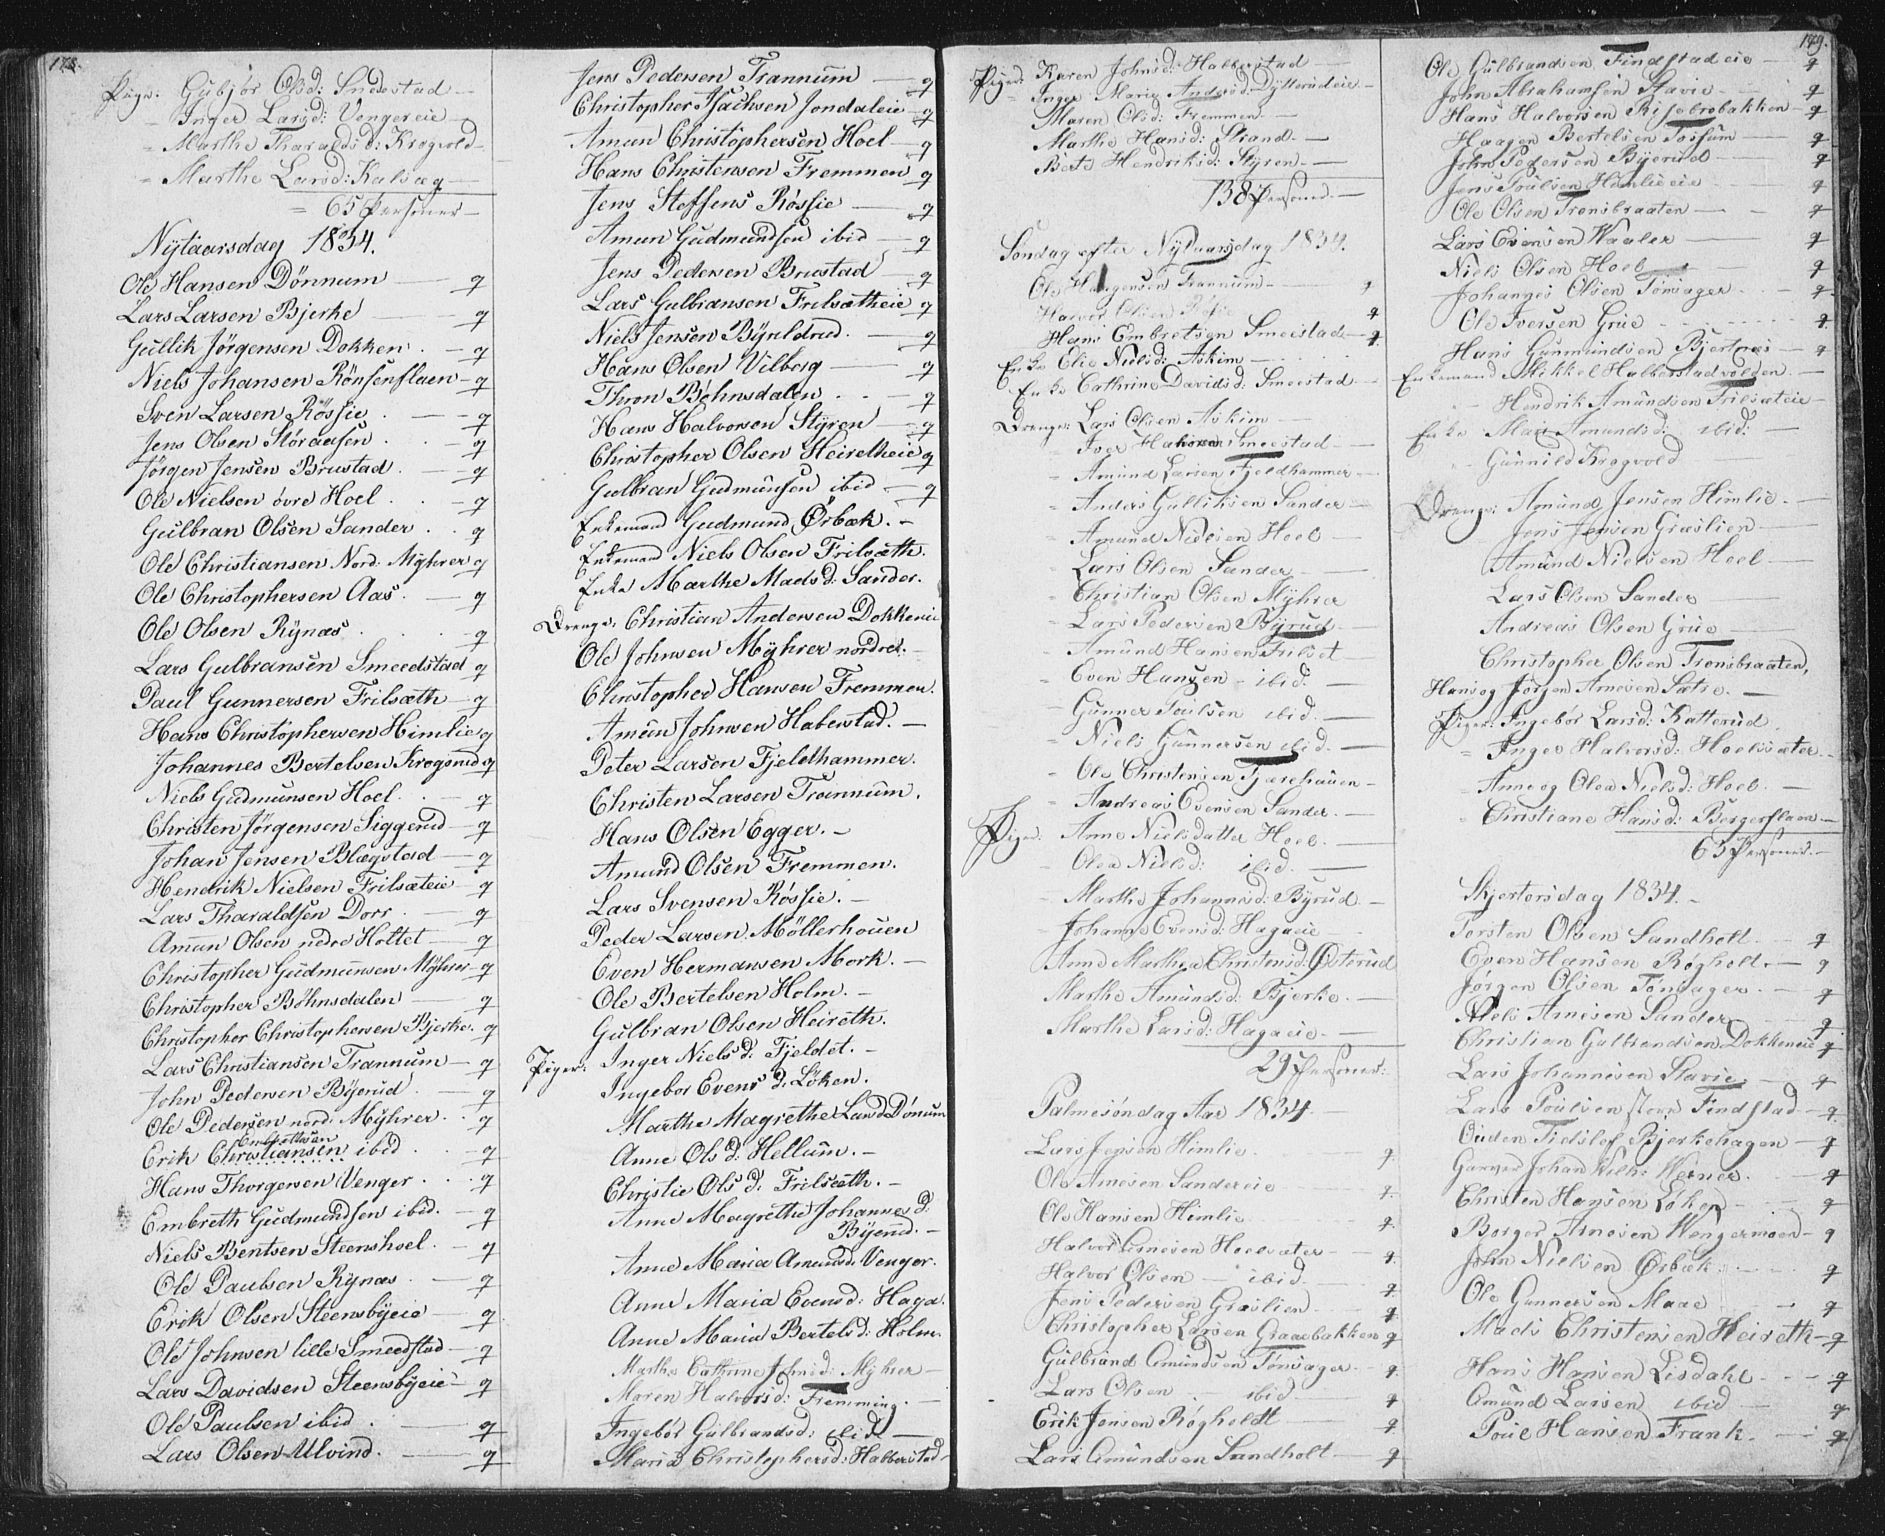 178.
Piger: Gubjør Olsd: Smedstad —
" Inger Larsd: Vengereie —
" Marthe Tharaldsd: Krogvold —
" Marthe Larsd: Kalsæg —
= 65 Personer —
Nytaarsdag 1834.
Ole Hansen Dönnum — q
Lars Larsen Bjerke — q
Gullik Jörgensen Dokken . — q
Niels Johansen Rönsenflaen — q
Sven Larsen Rössie . — q
Jens Olsen Störaasen . q
Jörgen Jensen Brustad . — q
Ole Nielsen övre Hoel . — q
Gulbran Olsen Sander . q
Ole Christiansen Nord: Myhrer q
Ole Christophersen Aas . — q
Ole Olsen Rynæs . q
Lars Gulbransen Smeedstad q
Paul Gunnersen Frilsæth — q
Hans Christophersen Himlie q
Johannes Bertelsen Krogsrud q
Niels Gudmunsen Hoel . q
Christen Jörgensen Siggerud — q
Johan Jensen Blegstad — q
Hendrik Nielsen Frilsæteie — q
Lars Tharaldsen Dorr . — q
Amun Olsen nedre Holtet — q
Christopher Gudmunsen Myhrer — q
Christopher Böhnsdalen — q
Christopher Christophersen Bjerke . q
Lars Christiansen Trannum — q
John Pedersen Byerud — q
Ole Pedersen nord: Myhrer . q
Embrettsen
Erik Christiansen ibid . — q
Hans Thorgersen Venger . q
Embreth Gudmundsen ibid. — q
Niels Bentsen Steenshoel . — q
Ole Paulsen Rynæs . — q
Erik Olsen Steensbyeie — q
Ole Johnsen lille Smeedstad — q
Lars Davidsen Steensbyeie — q
Ole Paulsen ibid . — q
Lars Olsen Ulvind . — q
Jens Pedersen Trannum — q
Christopher Isachsen Jondaleie — q
Amun Christophersen Hoel — q
Hans Christensen Fremmen q
Jens Steffens Røssie — q
Amun Gudmundsen ibid — q
Jens Pedersen Brustad — q
Lars Gulbransen Frilsætheie q
Niels Jensen Byuldrud . — q
Hans Olsen Vilberg — q
Thron Böhnsdalen . . — q
Hans Halvorsen Styren — q
Christopher Olsen Heiretheie q
Gulbran Gudmunsen ibid — q
Enkemand Gudmund Ørbæk . —
Enkemand Niels Olsen Frilsæth .
Enke Marthe Madsd: Sander .
Drenge: Christian Andersen Dokkeneie
Ole Johnsen Myhrer nordre . —
Christopher Hansen Fremmen .
Amun Johnsen Haberstad . —
Peter Larsen Fjeldhammer .
Christen Larsen Trannum .
Hans Olsen Egger . —
Amund Olsen Fremmen .
Lars Svensen Røssie . —
Peder Larsen Möllerhouen
Even Hermansen Mork . —
Ole Bertelsen Holm . —
Gulbran Olsen Heireth .
Piger: Inger Niels d: Fjeldet . —
Ingebor Evens d: Löken .
Marthe Magrethe Larsd Dönum
Anne Ols d: Hellum . —
Christie Ols d: Frilsæth . —
Anne Magrethe Johannes d:
Byerud . —
Anne Maria Amunsd: Venger .
Anne Maria Evensd: Haga .
Anne Maria Bertelsd: Holm .
Marthe Cathrine Johnsd: Myhrer —
Maren Halvorsd: Fremming . —
Ingebör Gulbrandsd: ibid —
Maria Christophersd: Halberstad —
179.
Piger: Karen Johnsd: Halberstad —
" Inger Marie Andersd: Dytterudeie —
Maren Olsd: Fremmen —
Marthe Hansd: Strand . —
Berte Hendriksd: Styren . —
138 Personer . —
Søndag efter Nytaarsdag 1834.
Ole Haagensen Trannum . — q
Halvor Olsen Røssie q
Hans Embretsen Smeestad — q
Enke Elie Nielsd: Askim —
Enke Cathrine Davidsd: Smeestad —
Drenge: Lars Olsen Askim —
" Iver Halvorsen Smeestad —
" Amund Larsen Fjeldhammer —
" Anders Gulliksen Sander —
" Amund Nielsen Hoel —
" Lars Olsen Sander —
" Christian Olsen Myhrer
" Lars Pedersen Byrud —
" Amund Hansen Frilset —
" Even Hansen — ibid . —
" Gunner Poulsen ibid . —
" Niels Gunnersen ibid . —
" Ole Christensen Tjærehauen —
" Andreas Evensen Sander . —
Piger: Anne Nielsdatter Hoel . —
" Olea Nielsd: ibid . —
" Marthe Johannesd: Byrud . —
" Johanne Evensd: Hagaeie
Anne Marthea Christensd: Østerud
Marthe Amundsd: Bjerke . —
Marthe Larsd: Hagaeie . —
29 Personer :
Palmesöndag Aar 1834
Lars Jensen Himlie . — q
Ole Arnesen Sandereie — q
Ole Hansen Himlie — q
Halvor Arnesen Hoelsæter — q
Halvor Olsen — ibid . q
Jens Pedersen Græslien — q
Christopher Larsen Graaebakken q
Gulbrand Amundsen Tønsager — q
Lars Olsen — ibid — q
Erik Jensen Røgholdt — q
Lars Amundsen Sandholt — q
Ole Gulbrandsen Findstadeie — q
John Abrahamsen Stavie — q
Hans Halvorsen Risebrobakken — q
Haagen Bertelsen Torsum — q
John Pedersen Byerud — q
Jens Poulsen Himlieeie — q
Ole Olsen Trønsbraaten — q
Lars Evensen Waaler — q
Niels Olsen Hoel — q
Johannes Olsen Tønsager . — q
Ole Iversen Grue . q
Hans Gunmundsen Bjertnæs — q
Enkemand Mikkel Halberstadvolden . —
— Hendrik Amundsen Frilsæteie —
Enke Mari Amundsd: ibid: —
— Gunnild Krogvold —
Drenge: Amund Jensen Himlie . —
Jens Jensen Græslien —
Amund Nielsen Hoel —
Lars Olsen Sander —
Andreas Olsen Grue —
Christopher Olsen Trønsbraaten,
Hans og Jørgen Arnesen Sætre . —
Piger: Ingebör Larsd: Katterud
" Inger Halvorsd: Hoelsæter —
Anne og Olea Nielsd: Hoel . —
" Christiane Hansd: Bergerflaen —
63 Personer . —
Skjertorsdag 1834. —
Torsten Olsen Sandholt . — q
Even Hansen Røgholt . — q
Jørgen Olsen Tønsager . — q
Niels Arnesen Sander — q
Christian Gulbrandsen Dokkeneie q
Lars Johannesen Stavie — q
Lars Poulsen store Findstad — q
Ouden Tidslef Bjerkehagen — q
Garver Johan Wilh: Werner . — q
Christen Hansen Løken — q
Borger Arnesen Wengermoen — q
John Nielsen Ørbæk . — q
Ole Gunnersen Maae — q
Mads Christensen Heireth — q
Hans Hansen Lisdahl — q
Amund Larsen ibid — q
Poul Hansen Frank . — q